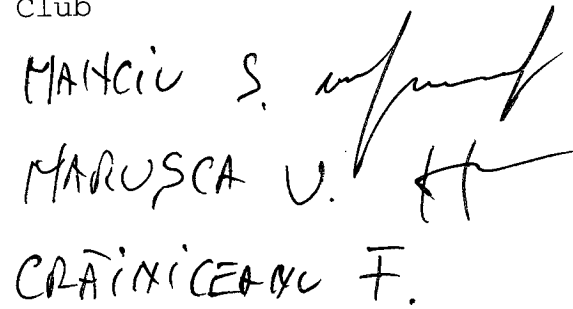 Club
MANCIU S.
MARUSCA V.
CRĂINICEANU F.